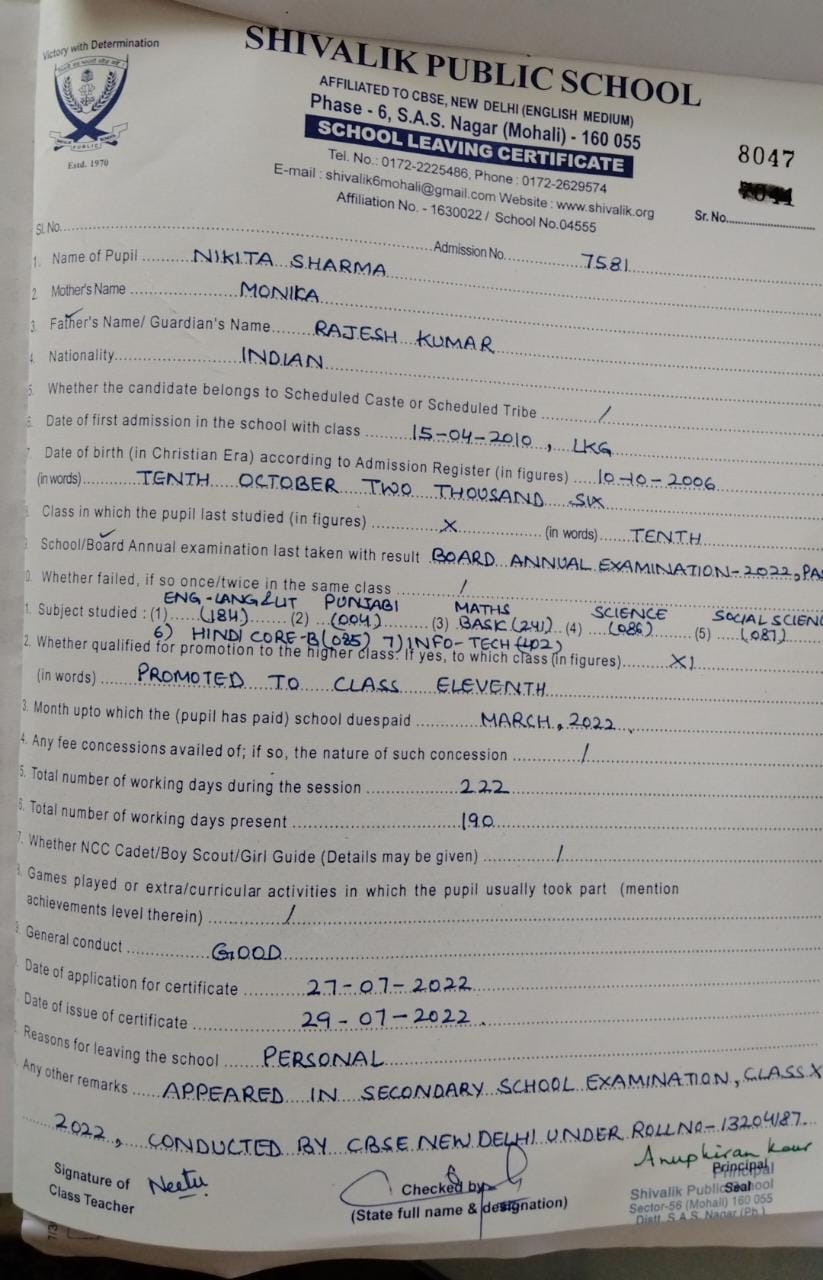 Victory with Determination
SHIVALIK PUBLIC SCHOOL
AFFILIATED TO CBSE, NEW DELHI (ENGLISH MEDIUM)
Phase - 6, S.A.S. Nagar (Mohali) - 160 055
SCHOOL LEAVING CERTIFICATE
Tel. No.: 0172-2225486, Phone : 0172-2629574
E-mail : shivalik6mohali@gmail.com Website : www.shivalik.org
Affiliation No. - 1630022 / School No.04555
PUBLIC
Estd. 1970
8047
Sr. No.
Sl. No. Admission No. 7581
1. Name of Pupil NIKITA SHARMA
2. Mother's Name MONIKA
3. Father's Name/ Guardian's Name RAJESH KUMAR
4. Nationality INDIAN
5. Whether the candidate belongs to Scheduled Caste or Scheduled Tribe /
6. Date of first admission in the school with class 15-04-2010, LKG
7. Date of birth (in Christian Era) according to Admission Register (in figures) 10-10-2006
(in words) TENTH OCTOBER TWO THOUSAND SIX
Class in which the pupil last studied (in figures) X (in words) TENTH
School/Board Annual examination last taken with result BOARD ANNUAL EXAMINATION-2022, PAS
0. Whether failed, if so once/twice in the same class /
ENG-LANG & LIT PUNJABI MATHS SCIENCE SOCIAL SCIENC
1. Subject studied : (1) (184) (2) (004) (3) BASIC (241) (4) (086) (5) (087)
6) HINDI CORE-B (085) 7) INFO-TECH (402)
2. Whether qualified for promotion to the higher class. If yes, to which class (in figures) XI
(in words) PROMOTED TO CLASS ELEVENTH
3. Month upto which the (pupil has paid) school duespaid MARCH, 2022
4. Any fee concessions availed of; if so, the nature of such concession /
5. Total number of working days during the session 222
6. Total number of working days present 190
7. Whether NCC Cadet/Boy Scout/Girl Guide (Details may be given) /
8. Games played or extra/curricular activities in which the pupil usually took part (mention
achievements level therein) /
9. General conduct GOOD
Date of application for certificate 27-07-2022
Date of issue of certificate 29-07-2022.
Reasons for leaving the school PERSONAL
Any other remarks APPEARED IN SECONDARY SCHOOL EXAMINATION, CLASS X
2022, CONDUCTED BY CBSE NEW DELHI UNDER ROLL NO-13204187.
Signature of Class Teacher Neetu
Checked by
(State full name & designation)
Anupkiran Kaur
Principal
Seal
Principal
Shivalik Public School
Sector-56 (Mohali) 160 055
Distt. S.A.S. Nagar (Pb.)